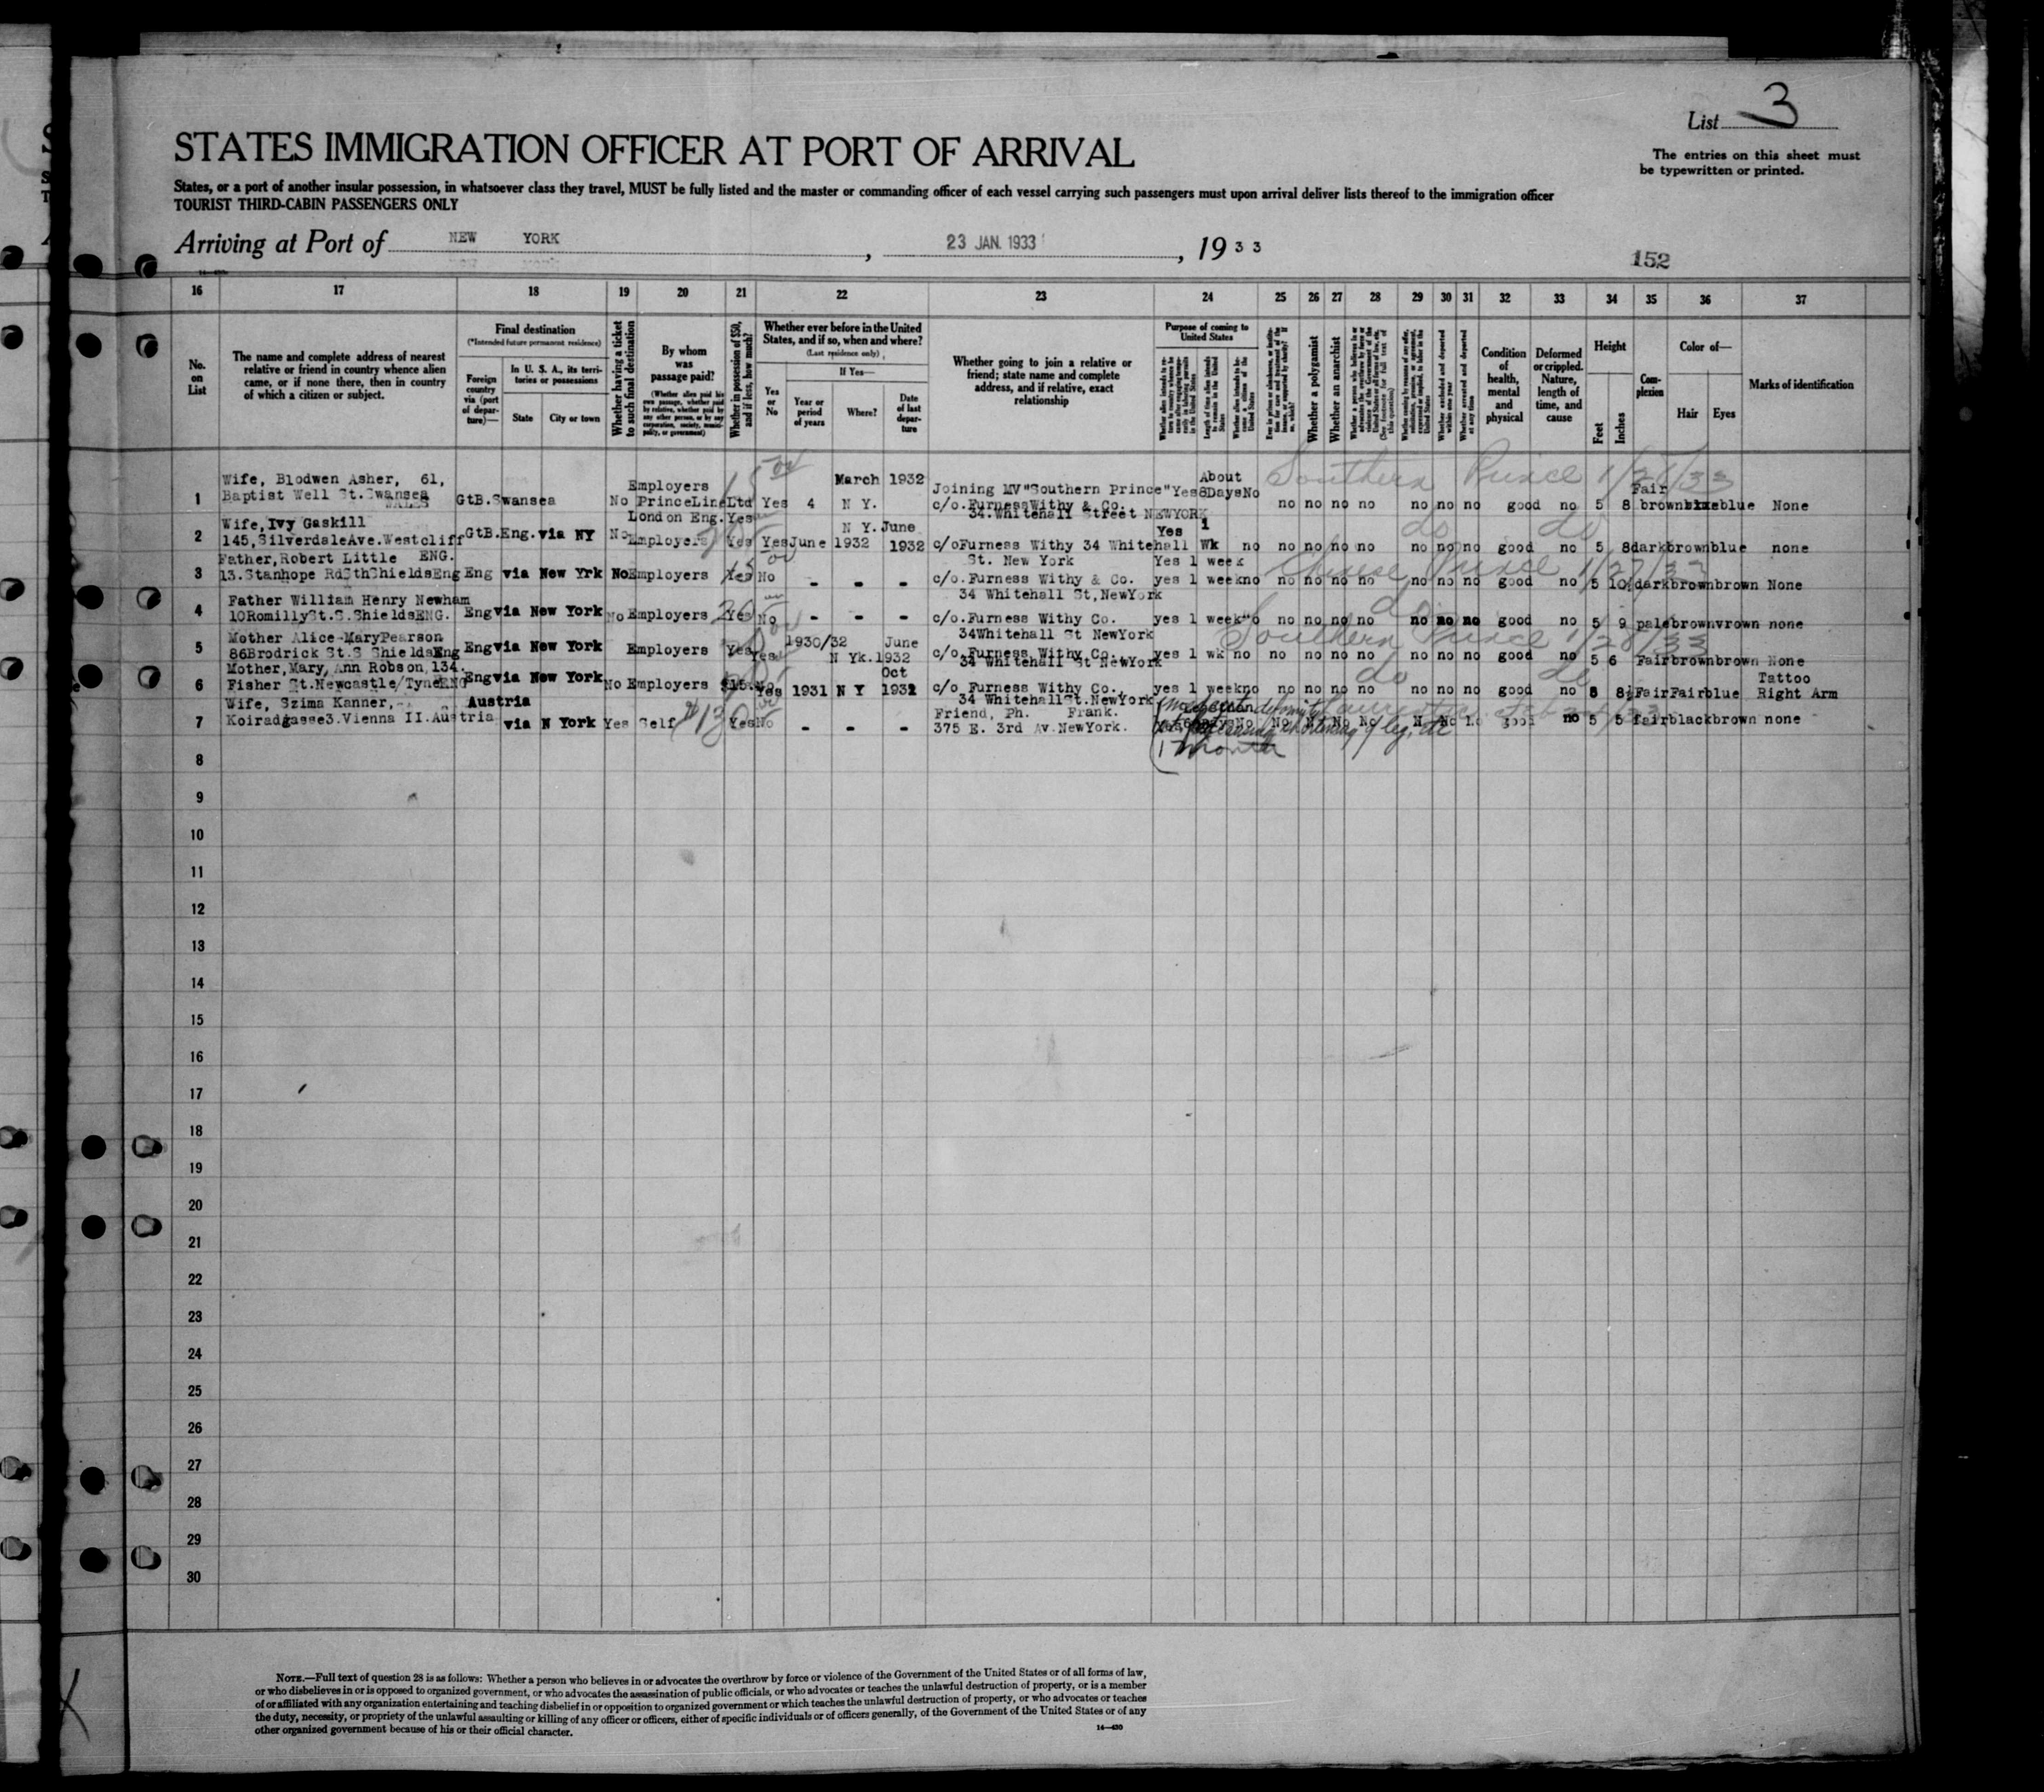 List 3
The entries on this sheet must
be typewritten or printed.
STATES IMMIGRATION OFFICER AT PORT OF ARRIVAL
States, or a port of another insular possession, in whatsoever class they travel, MUST be fully listed and the master or commanding officer of each vessel carrying such passengers must upon arrival deliver lists thereof to the immigration officer
TOURIST THIRD-CABIN PASSENGERS ONLY
Arriving at Port of NEW YORK , 23 JAN. 1933 , 19 3 3
152
16 17 18 19 20 21 22 23 24 25 26 27 28 29 30 31 32 33 34 35 36 37
No. on List
The name and complete address of nearest
relative or friend in country whence alien
came, or if none there, then in country
of which a citizen or subject.
Final destination
(*Intended future permanent residence)
Foreign country via (port of departure)—
In U. S. A., its territories or possessions
State
City or town
Whether having a ticket to such final destination
By whom was passage paid?
(Whether alien paid his own passage, whether paid by relative, whether paid by any other person, or by any corporation, society, municipality, or government)
Whether in possession of $50, and if less, how much?
Whether ever before in the United
States, and if so, when and where?
(Last residence only)
Yes or No
If Yes—
Year or period of years
Where?
Date of last departure
Whether going to join a relative or
friend; state name and complete
address, and if relative, exact
relationship
Purpose of coming to United States
Whether a polygamist
Whether an anarchist
Condition of health, mental and physical
Deformed or crippled. Nature, length of time, and cause
Height
Feet
Inches
Complexion
Color of—
Hair
Eyes
Marks of identification
1 Wife, Blodwen Asher, 61,
Baptist Well St.Swansea
WALES
GtB.Swansea No Employers PrinceLineLtd London Eng. Yes Yes 4 March N Y. 1932 Joining MV"Southern Prince"
c/o.FurnessWithy & Co.
34.Whitehall Street NEWYORK
Yes About 8Days No no no no no no no no good no 5 8 Fair brown blue None
Southern Prince
2 Wife,Ivy Gaskill
145,SilverdaleAve.Westcliff
ENG.
GtB.Eng.via NY No Employers Yes Yes June 1932 N Y. June 1932 c/oFurness Withy 34 Whitehall
St. New York
Yes 1 Wk no no no no no no no no good no 5 8 dark brown blue none
do do
3 Father,Robert Little
13.Stanhope RdSthShieldsEng Eng via New Yrk No Employers Yes No - - - c/o.Furness Withy & Co.
34 Whitehall St,NewYork
Yes 1 week
yes 1 week no no no no no no no no good no 5 10½ dark brown brown None
Chinese Prince
4 Father William Henry Newham
10RomillySt.S.ShieldsENG. Eng via New York No Employers Yes No - - - c/o.Furness Withy Co.
34Whitehall St NewYork
yes 1 week no no no no no no no good no 5 9 pale brown vrown none
do
5 Mother Alice-MaryPearson
86Brodrick St.S ShieldsEng Eng via New York Employers Yes Yes 1930/32 N Yk. June 1932 c/o.Furness Withy Co.
34 Whitehall St NewYork
yes 1 wk no no no no no no no no good no 5 6 Fair brown brown None
Southern Prince 1/28/33
6 Mother,Mary, Ann Robson,134.
Fisher St.Newcastle/TyneENG Eng via New York No Employers $15. Yes 1931 N Y Oct 1932 c/o Furness Withy Co.,
34 WhitehallSt.NewYork
yes 1 week no no no no no no no no good no 5 8½ Fair Fair blue Tattoo
Right Arm
do do
7 Wife, Szima Kanner,
Koiradgasse3.Vienna II.Austria
Austria
via N York Yes Self $130 Yes No - - - Friend, Ph. Frank.
375 E. 3rd Av.NewYork.
No No No No No good no 5 5 fair black brown none
shortening of leg, etc
1 month
8
9
10
11
12
13
14
15
16
17
18
19
20
21
22
23
24
25
26
27
28
29
30
NOTE.—Full text of question 28 is as follows: Whether a person who believes in or advocates the overthrow by force or violence of the Government of the United States or of all forms of law,
or who disbelieves in or is opposed to organized government, or who advocates the assassination of public officials, or who advocates or teaches the unlawful destruction of property, or is a member
of or affiliated with any organization entertaining and teaching disbelief in or opposition to organized government or which teaches the unlawful destruction of property, or who advocates or teaches
the duty, necessity, or propriety of the unlawful assaulting or killing of any officer or officers, either of specific individuals or of officers generally, of the Government of the United States or of any
other organized government because of his or their official character.
14—430